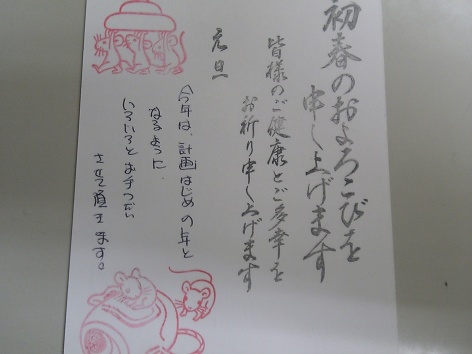 初春のおよろこびを
申し上げます
皆様のご健康とご多幸を
お祈り申し上げます
元旦
今年は、計画はじめの年と
なるように、
いろいろとお手つだい
させて頂きます。